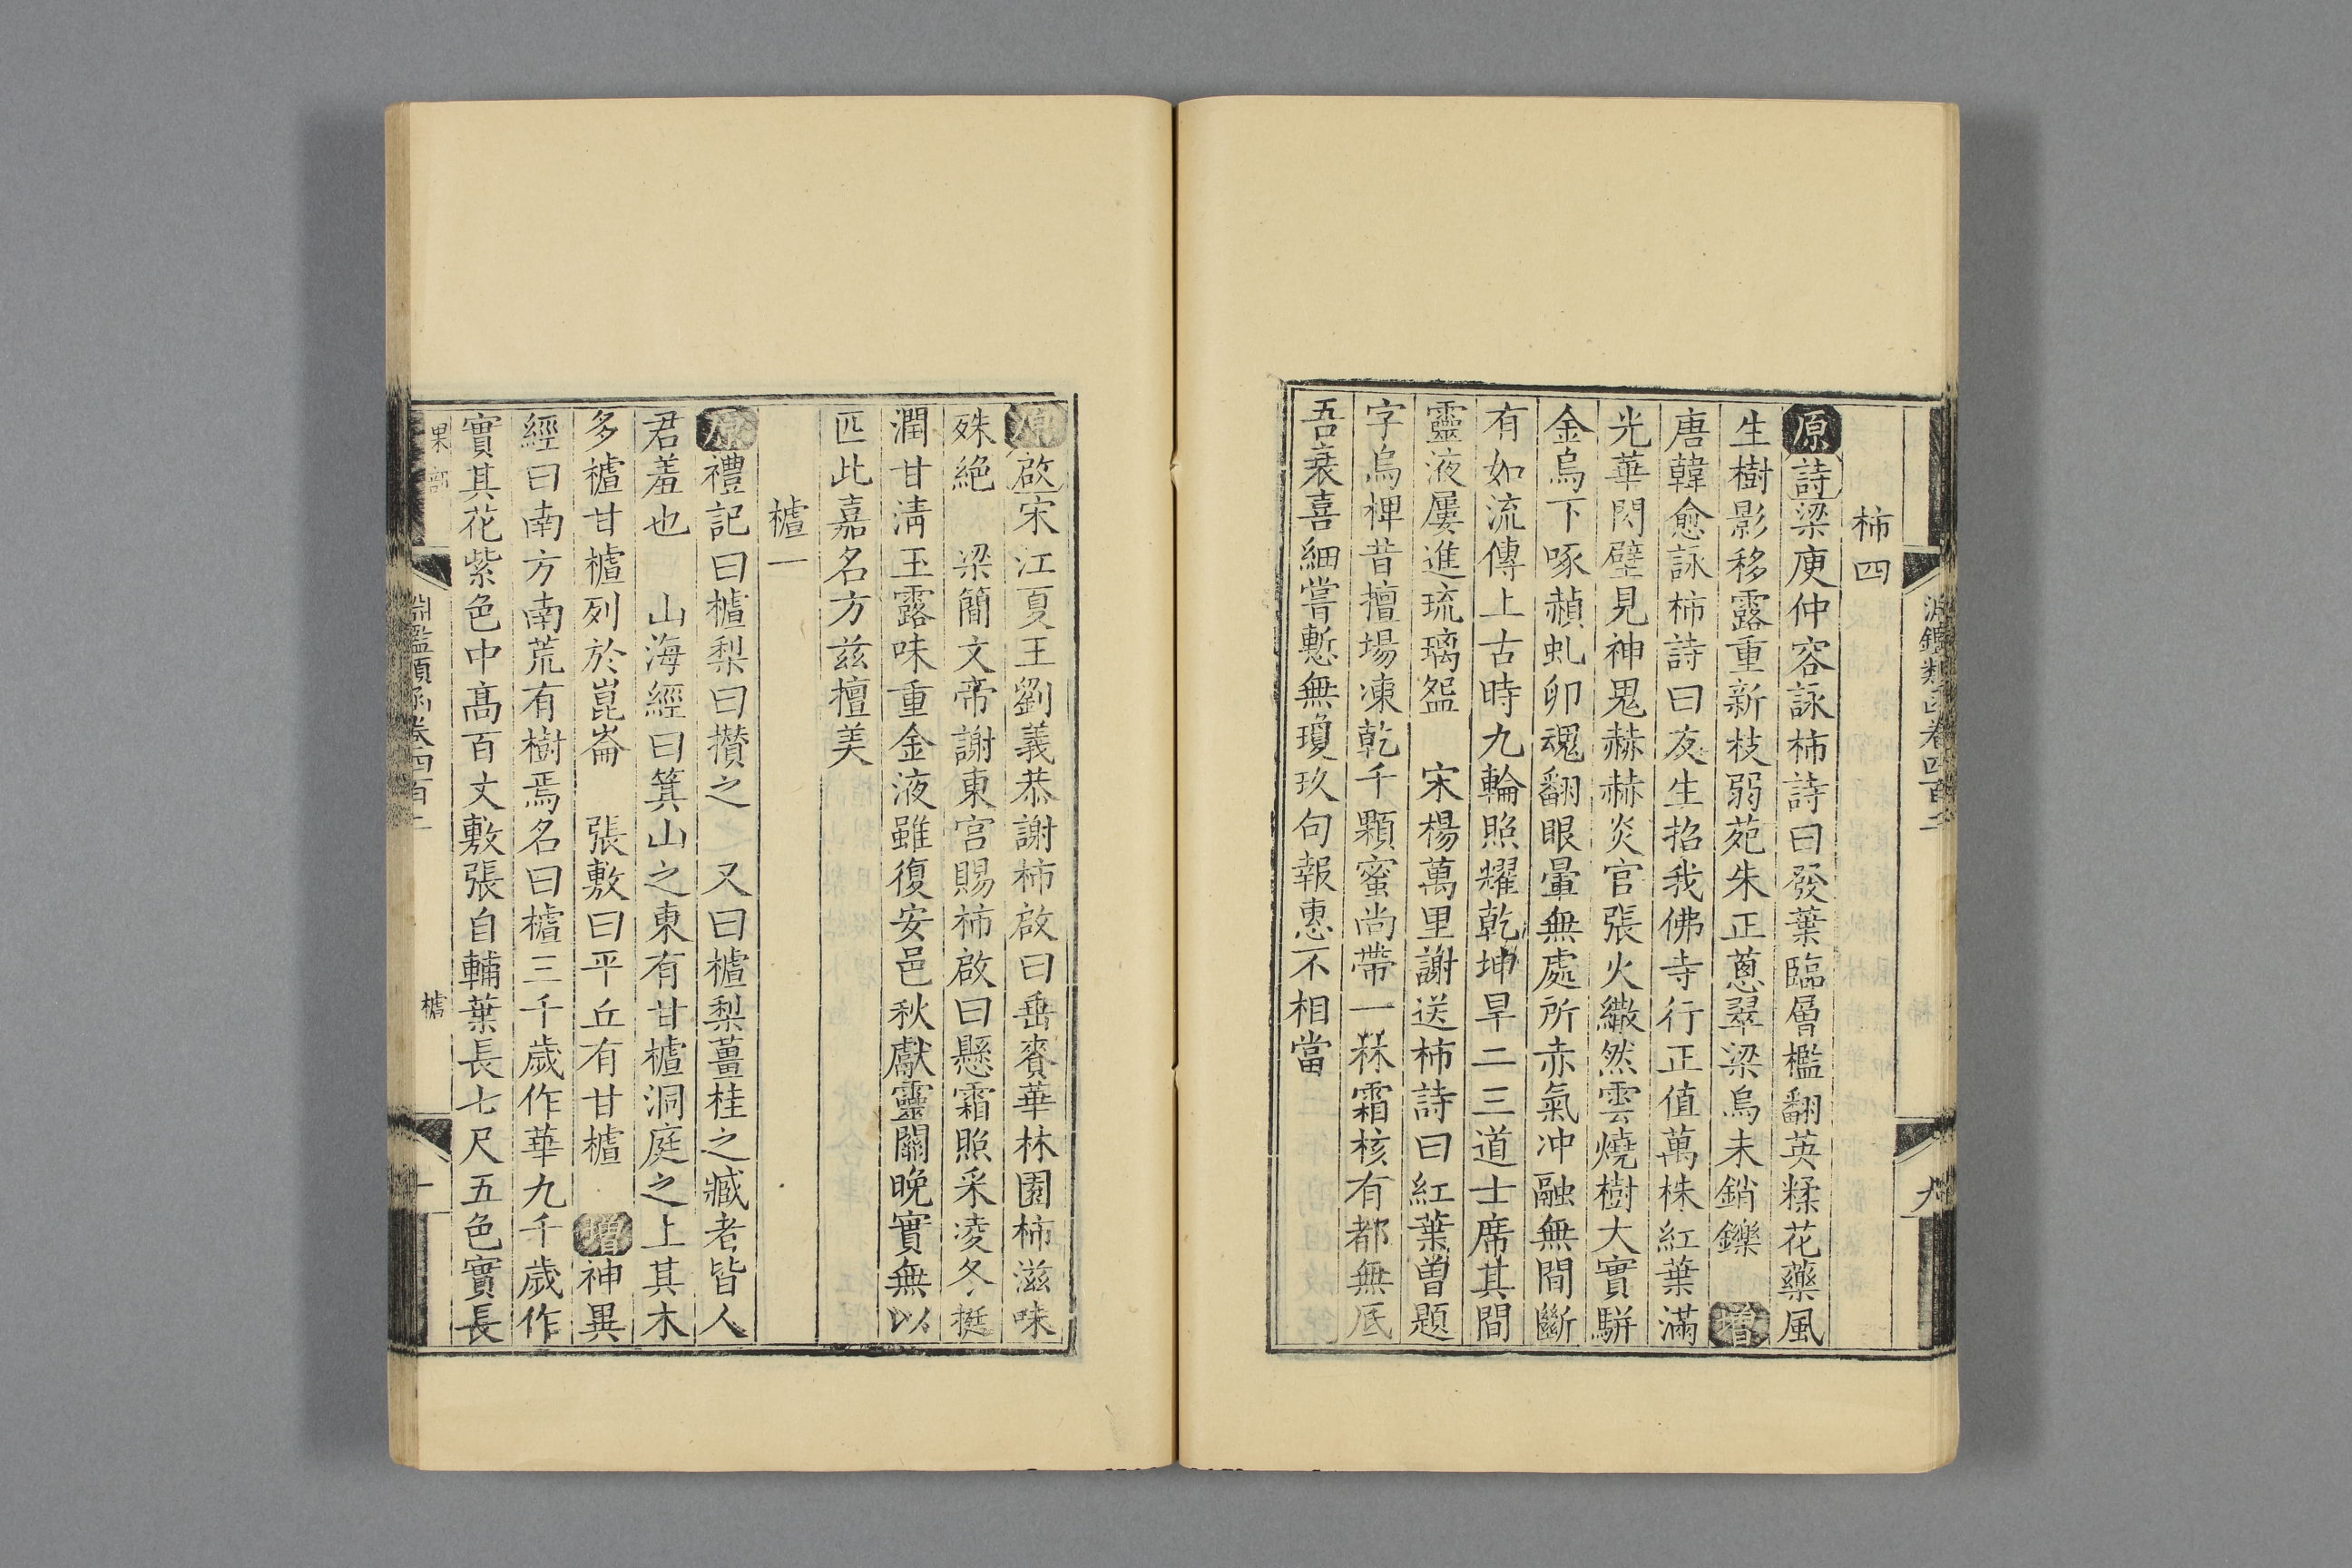 柿四
原詩梁庾仲容詠柿詩曰發葉臨層檻翻英糅花藥風
生樹影移露重新枝弱苑朱正蔥翠梁烏未銷鑠 增
唐韓愈詠柿詩曰友生招我佛寺行正值萬株紅葉滿
光華閃壁見神鬼赫赫炎官張火繖然雲燒樹大實駢
金烏下啄赬虬卵魂翻眼暈無處所赤氣冲融無間斷
有如流傳上古時九輪照耀乾坤旱二三道士席其間
靈液屢進琉璃盌 宋楊萬里謝送柿詩曰紅葉曾題
字烏椑昔擅場凍乾千顆蜜尚帶一林霜核有都無底
吾衰喜細嘗慙無瓊玖句報惠不相當
淵鑑類函卷四百二
九
原啟宋江夏王劉義恭謝柿啟曰垂賚華林園柿滋味
殊絕 梁簡文帝謝東宮賜柿啟曰懸霜照采凌冬挺
潤甘清玉露味重金液雖復安邑秋獻靈關晚實無以
匹此嘉名方兹擅美
樝一
原禮記曰樝梨曰攅之 又曰樝梨薑桂之臧者皆人
君羞也 山海經曰箕山之東有甘樝洞庭之上其木
多樝甘樝列於崑崙 張敷曰平丘有甘樝 增神異
經曰南方南荒有樹焉名曰樝三千歲作華九千歲作
實其花紫色中高百丈敷張自輔葉長七尺五色實長
果部
淵鑑類函卷四百二
樝